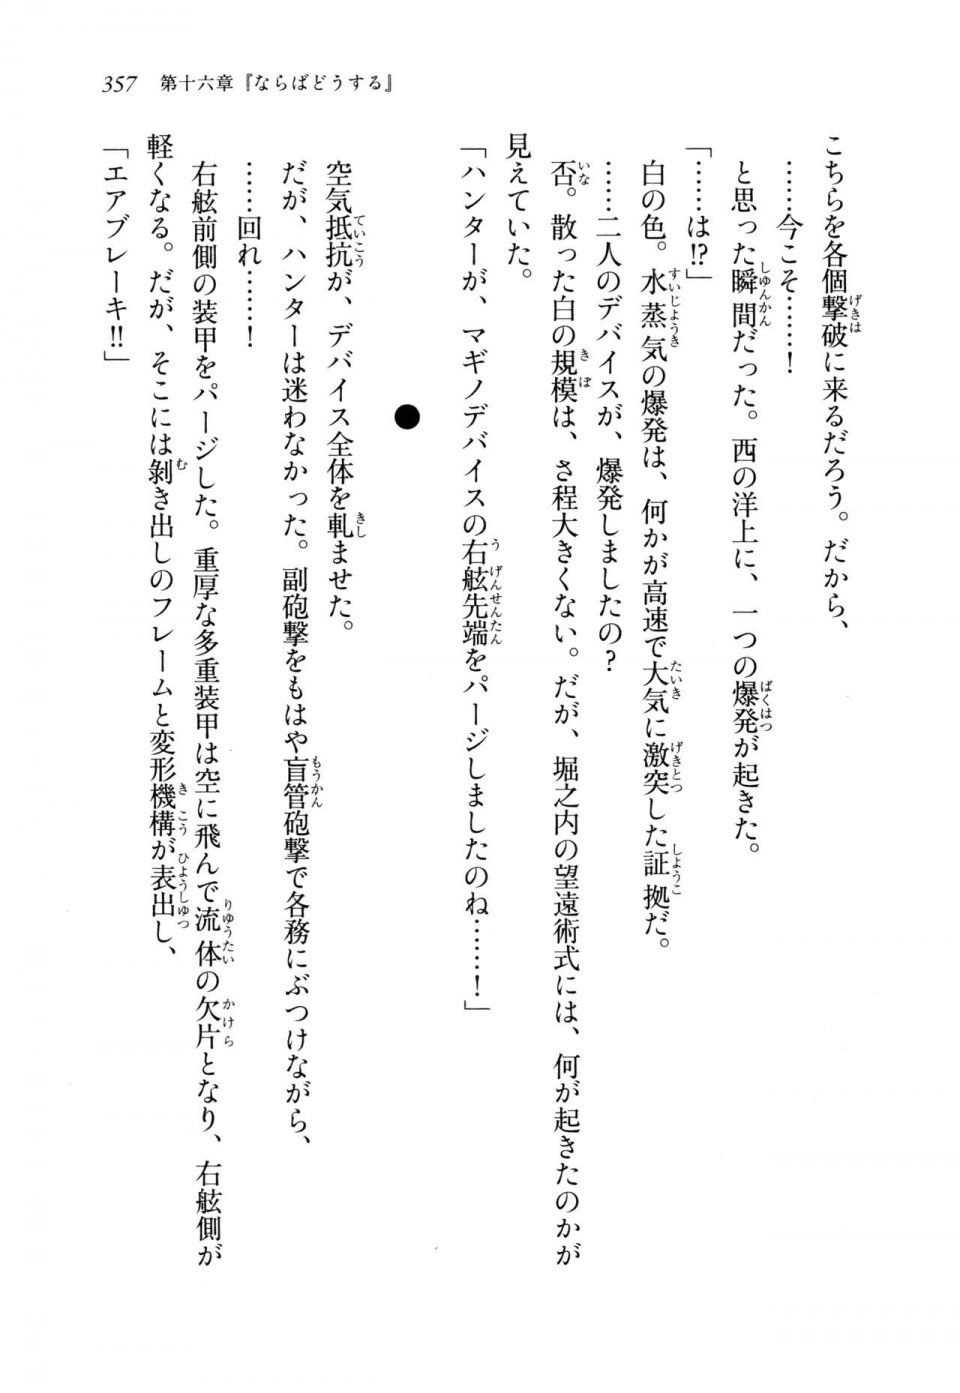 357　第十六章『ならばどうする』
こちらを各個撃破に来るだろう。だから、
……今こそ……！
と思った瞬間だった。西の洋上に、一つの爆発が起きた。
「……は!?」
白の色。水蒸気の爆発は、何かが高速で大気に激突した証拠だ。
……二人のデバイスが、爆発しましたの？
否。散った白の規模は、さ程大きくない。だが、堀之内の望遠術式には、何が起きたのかが
見えていた。
「ハンターが、マギノデバイスの右舷先端をパージしましたのね……！」
●
空気抵抗が、デバイス全体を軋ませた。
だが、ハンターは迷わなかった。副砲撃をもはや盲管砲撃で各務にぶつけながら、
……回れ……！
右舷前側の装甲をパージした。重厚な多重装甲は空に飛んで流体の欠片となり、右舷側が
軽くなる。だが、そこには剝き出しのフレームと変形機構が表出し、
「エアブレーキ!!」